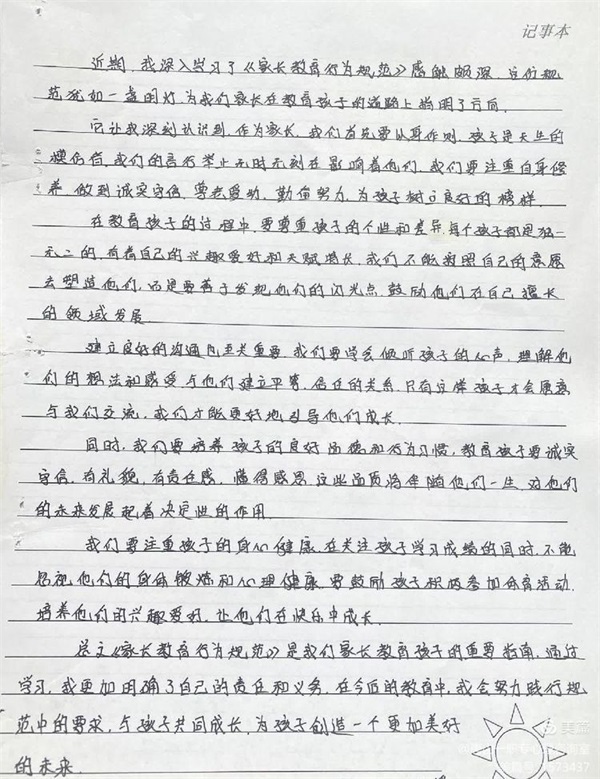 记事本
近期,我深入学习了《家长教育行为规范》感触颇深,这份规
范犹如一盏明灯,为我们家长在教育孩子的道路上指明了方向.
它让我深刻认识到,作为家长,我们首先要以身作则,孩子是天生的
模仿者,我们的言行举止无时无刻在影响着他们,我们要注重自身修
养,做到诚实守信,尊老爱幼,勤俭努力,为孩子树立良好的榜样.
在教育孩子的过程中,要尊重孩子的个性和差异,每个孩子都是独一
无二的,有着自己的兴趣爱好和天赋增长,我们不能按照自己的意愿
去塑造他们,而是要善于发现他们的闪光点,鼓励他们在自己擅长
的领域发展
建立良好的沟通也至关重要,我们要学会倾听孩子的心声,理解他
们的想法和感受,与他们建立平等,信任的关系,只有这样孩子才会愿意
与我们交流,我们才能更好地引导他们成长.
同时,我们要培养孩子的良好品德和行为习惯,教育孩子要诚实
守信,有礼貌,有责任感,懂得感恩,这些品质将伴随他们一生,对他们
的未来发展起着决定性的作用
我们要注重孩子的身心健康,在关注孩子学习成绩的同时,不能
忽视他们的身体锻炼和心理健康,要鼓励孩子积极参加体育活动,
培养他们的兴趣爱好,让他们在快乐中成长.
总之《家长教育行为规范》是我们家长教育孩子的重要指南,通过
学习,我更加明确了自己的责任和义务,在今后的教育中,我会努力践行规
范中的要求,与孩子共同成长,为孩子创造一个更加美好
的未来.